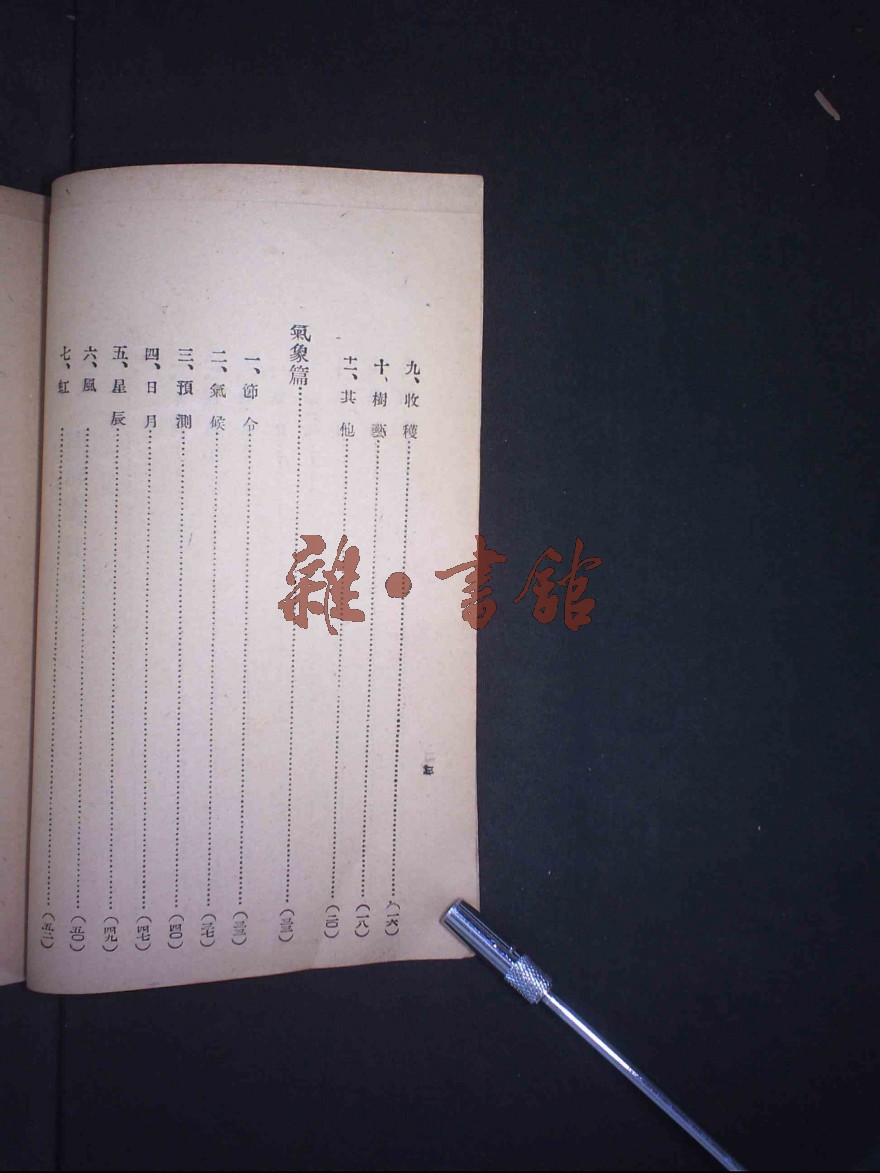 九、收穫……（一六）
十、樹藝……（一八）
十一、其他……（二〇）
氣象篇……（三三）
一、節令……（三三）
二、氣候……（三七）
三、預測……（四〇）
四、日月……（四七）
五、星辰……（四九）
六、風……（五〇）
七、虹……（五二）
雜·書館